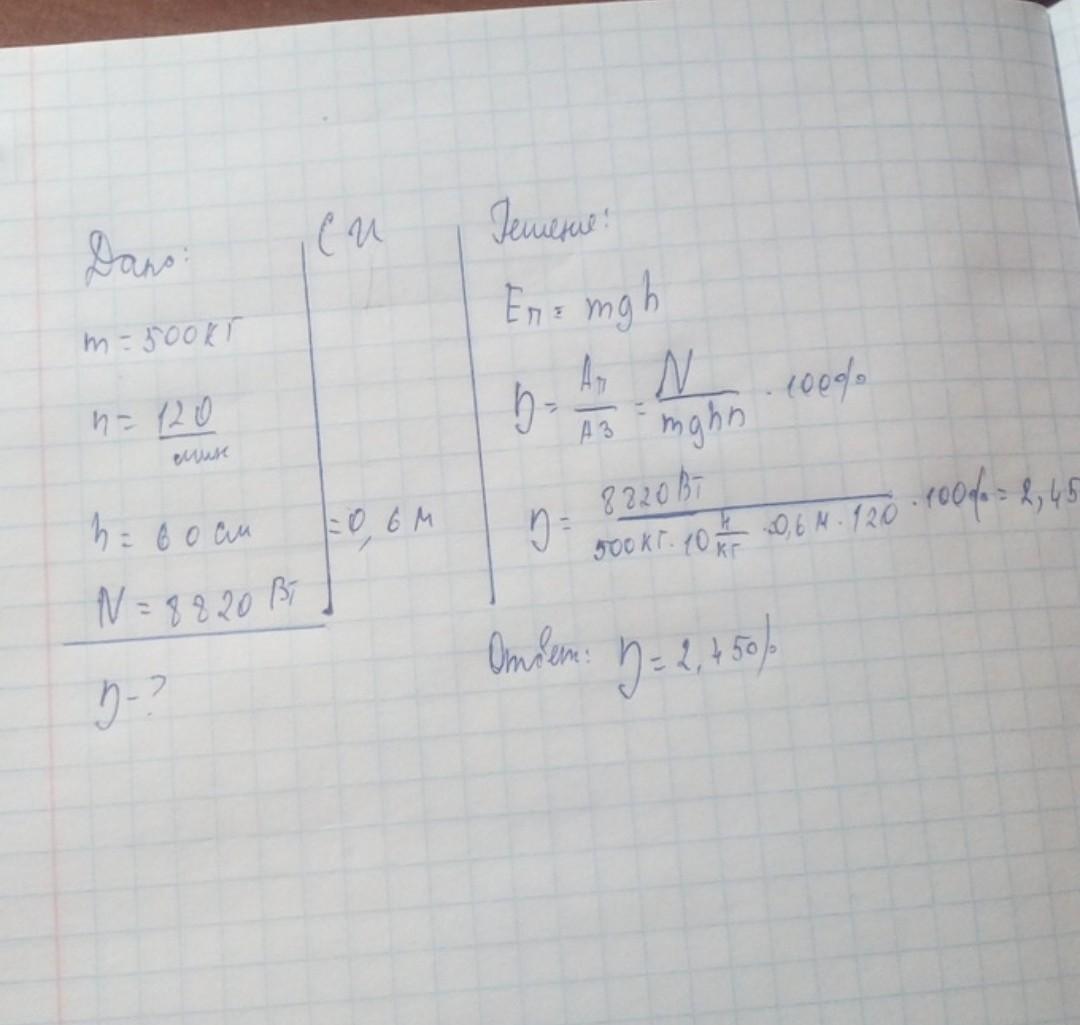 Дано:
m = 500кг
n = 120/мин
h = 60 см
N = 8820 Вт
η - ?
СИ
= 0,6 м
Решение:
Eп = mgh
η = Aп/AЗ = N/mghn · 100%
η = 8820 Вт/500кг · 10 н/кг · 0,6 м · 120 · 100% = 2,45
Ответ: η = 2,45%